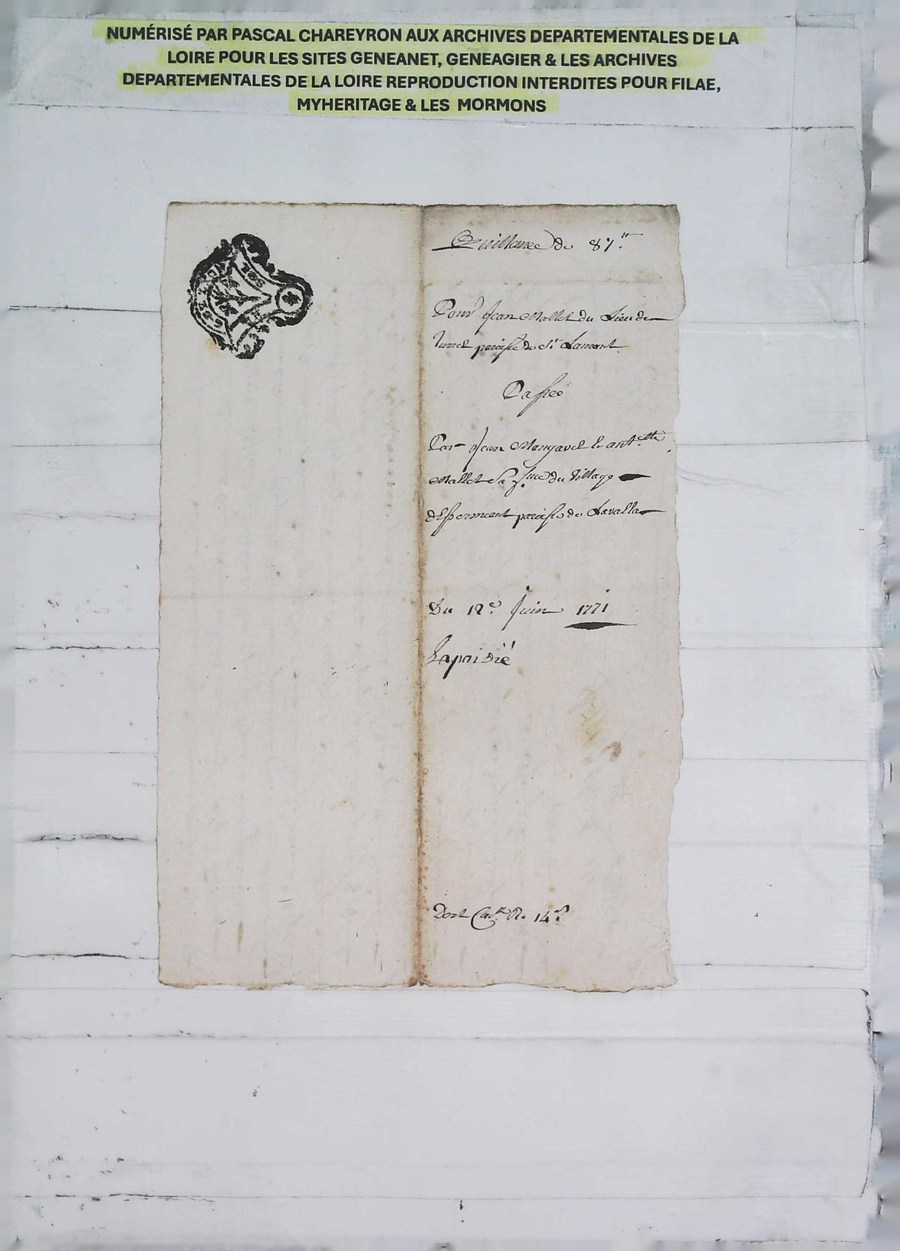 NUMÉRISÉ PAR PASCAL CHAREYRON AUX ARCHIVES DEPARTEMENTALES DE LA
LOIRE POUR LES SITES GENEANET, GENEAGIER & LES ARCHIVES
DEPARTEMENTALES DE LA LOIRE REPRODUCTION INTERDITES POUR FILAE,
MYHERITAGE & LES MORMONS
Quittance de 87ᵗᵗ
Pour Jean Mallet du Lieu de
paroisse de Sᵗ
Passée
Par Jean &
Mallet Sa du Village
paroisse de Lavalla
Du 12ᵉ Juin 1771